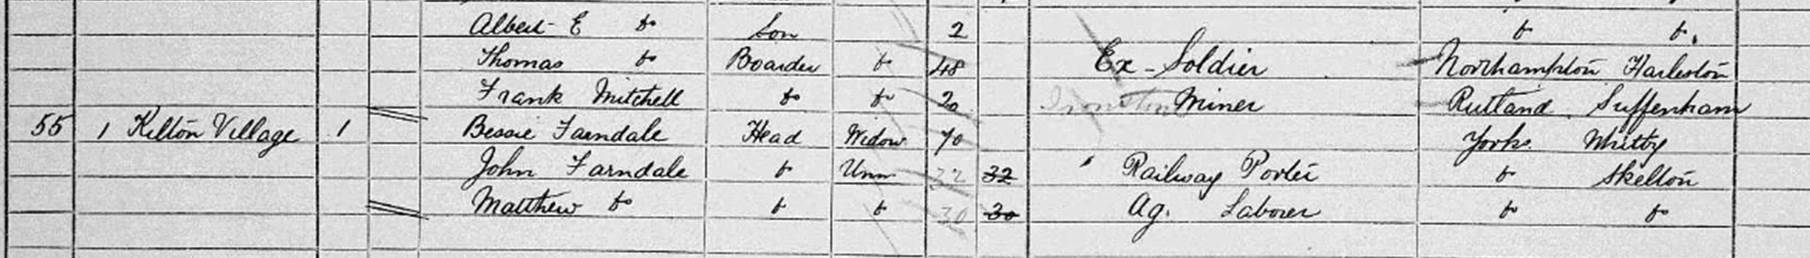 Albert E do Son 2 do do.
Thomas do Boarder do 48 Ex-Soldier Northampton Harleston
Frank Mitchell do do 20 Ironstone Miner Rutland Suffenham
55 1 Kilton Village 1 Bessie Farndale Head Widow 70 Yorks. Whitby
John Farndale do Unm 32 32 Railway Porter do Skelton
Matthew do do do 30 30 Ag. Laborer do do